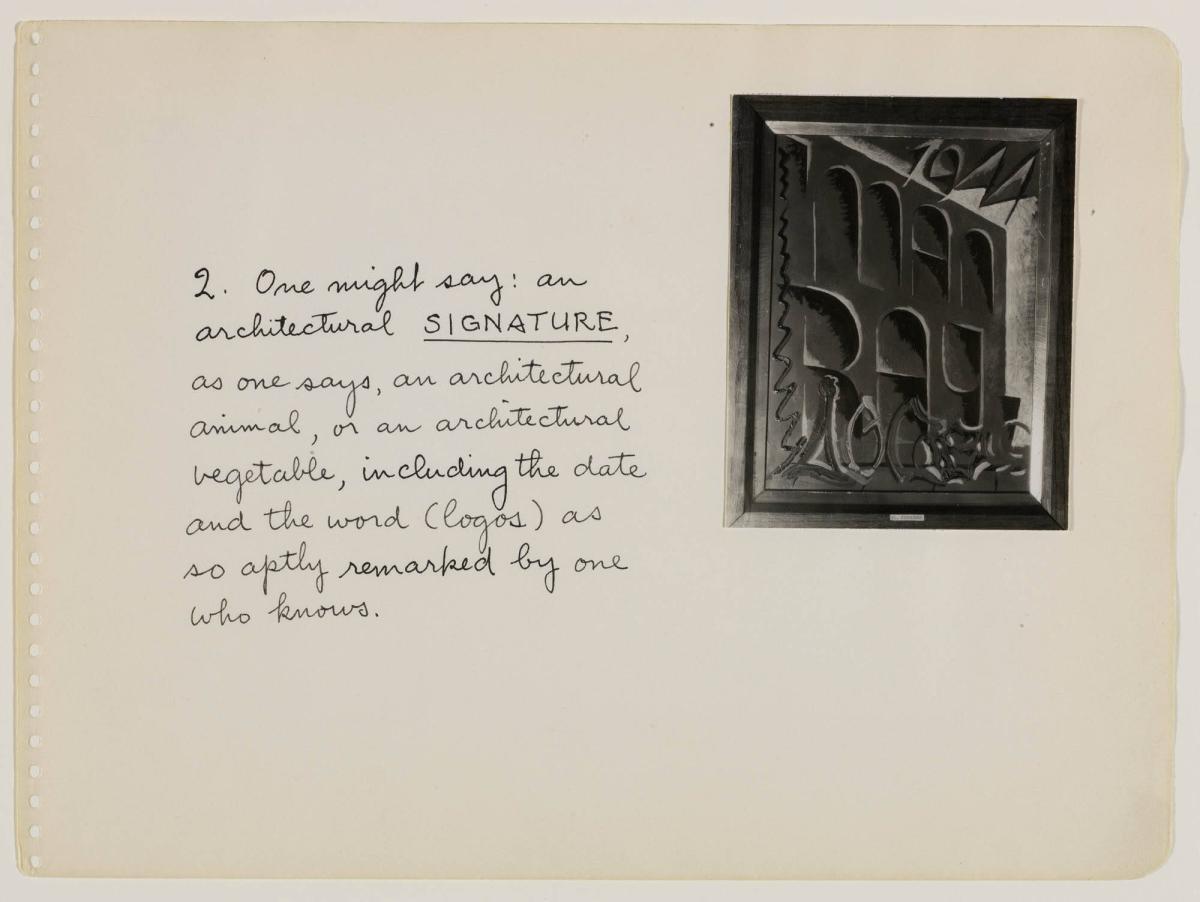 2. One might say: an
architectural SIGNATURE,
as one says, an architectural
animal, or an architectural
vegetable, including the date
and the word (logos) as
so aptly remarked by one
who knows.
1944
MAN
RAY